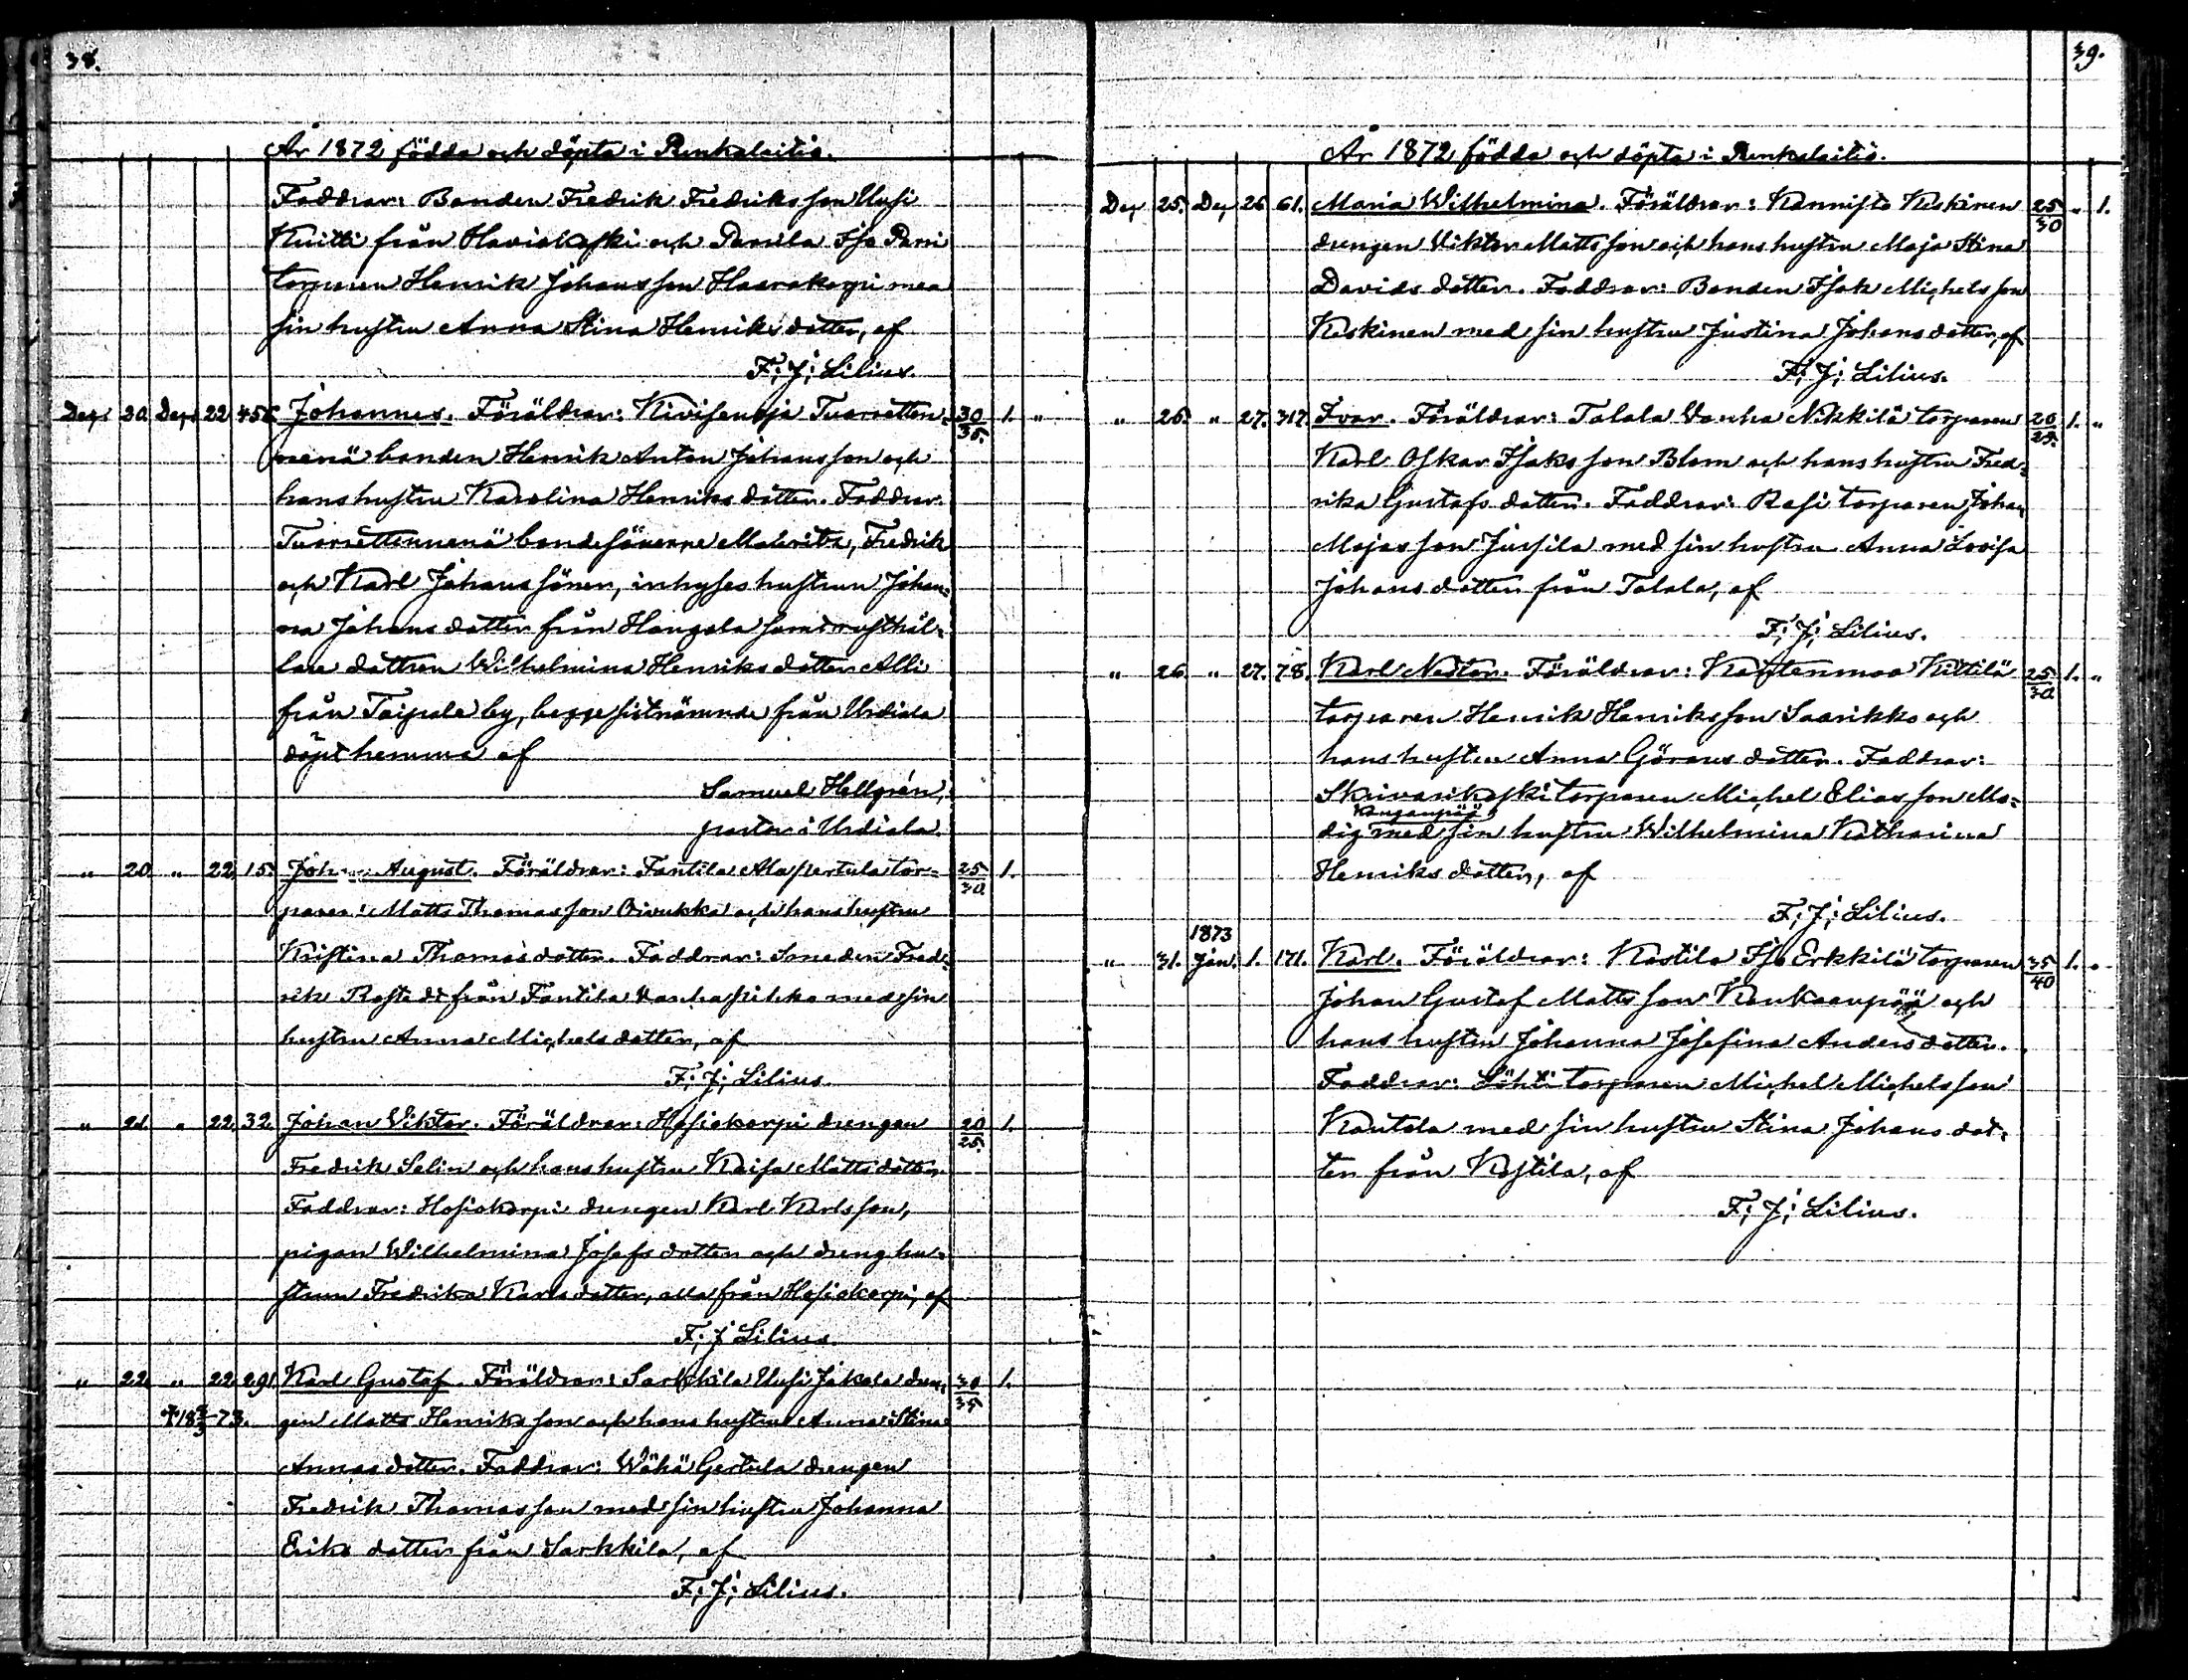 38.
År 1872 födda och döpta i Punkalaitio.
Faddrar: Bonden Fredrik Fredriksson Uusi
Kuitti från Haviokoski och Parsila Iso Parri
torparen Henrik Johansson Haarakorpi med
sin hustru Anna Stina Henriksdotter, af
F: J: Lilius.
Dec. 20. Dec. 22. 456. Johannes. Föräldrar: Kivisenoja Tuorsetten- 30/35. 1. "
menä bonden Henrik Anton Johansson och
hans hustru Karolina Henriksdotter. Faddrar:
Tuorsettenmenä bondesönerne Malerita, Fredrik
och Karl Johanssöner, inhyses hustrun Johan-
na Johansdotter från Hangala samt rusthål-
lare dottren Wilhelmina Henriksdotter Alli
från Taipale by, begge sistnämnde från Urdiala
döpt hemma af
Samuel Hellgrén,
pastor i Urdiala.
" 20. " 22. 15. Johan August. Föräldrar: Fantila Alapertula tor- 25/30. 1.
paren Matts Thomasson Oivukka och hans hustru
Kristina Thomasdotter. Faddrar: Smeden Fred-
rik Rostedt från Fantila Vanhapihko med sin
hustru Anna Michelsdotter, af
F: J: Lilius.
" 21. " 22. 32. Johan Viktor. Föräldrar: Hosiokorpi drengen 20/25. 1.
Fredrik Selin och hans hustru Kaisa Mattsdotter.
Faddrar: Hosiokorpi drengen Karl Karlsson,
pigan Wilhelmina Josefsdotter och dreng hu-
strun Fredrika Karlsdotter, alla från Hosiokorpi, af
F: J: Lilius.
" 22. " 22. 291. Karl Gustaf. Föräldrar: Sarkkila Uusi Jakala dren- 30/35 1.
73. gen Matts Henriksson och hans hustru Anna Stina
Annasdotter. Faddrar: Wähä Gertula drengen
Fredrik Thomasson med sin hustru Johanna
Eriksdotter från Sarkkila, af
F: J: Lilius.
39.
År 1872 födda och döpta i Punkalaitio.
Dec 25. Dec 26. 61. Maria Wilhelmina. Föräldrar: Kannisto Keskinen 25/30 " 1.
drengen Viktor Mattsson och hans hustru Maja Stina
Davidsdotter. Faddrar: Bonden Isak Michelsson
Keskinen med sin hustru Justina Johansdotter, af
F: J: Lilius.
" 26. " 27. 317. Ivar. Föräldrar: Talala Vanha Nikkilä torparen 20/25. 1. "
Karl Oskar Isaksson Blom och hans hustru Fred-
rika Gustafsdotter. Faddrar: Rasi torparen Johan
Majasson Jussila med sin hustru Anna Lovisa
Johansdotter från Talala, af
F: J: Lilius.
" 26. " 27. 78. Karl Nestor. Föräldrar: Kantenmaa Kittilä 25/30. 1. "
torparen Henrik Henriksson Saarikko och
hans hustru Anna Göransdotter. Faddrar:
Skrivarikoski torparen Michel Eliasson Mo-
Kanganpää
dig med sin hustru Wilhelmina Katharina
Henriksdotter, af
F: J: Lilius.
1873
" 31. Jan. 1. 171. Karl. Föräldrar: Kostila Iso Erkkilä torparen 35/40 1. "
Johan Gustaf Mattsson Kankaanpää och
hans hustru Johanna Josefina Andersdotter.
Faddrar: Lähti torparen Michel Michelsson
Kautala med sin hustru Stina Johansdot-
ter från Kostila, af
F: J: Lilius.